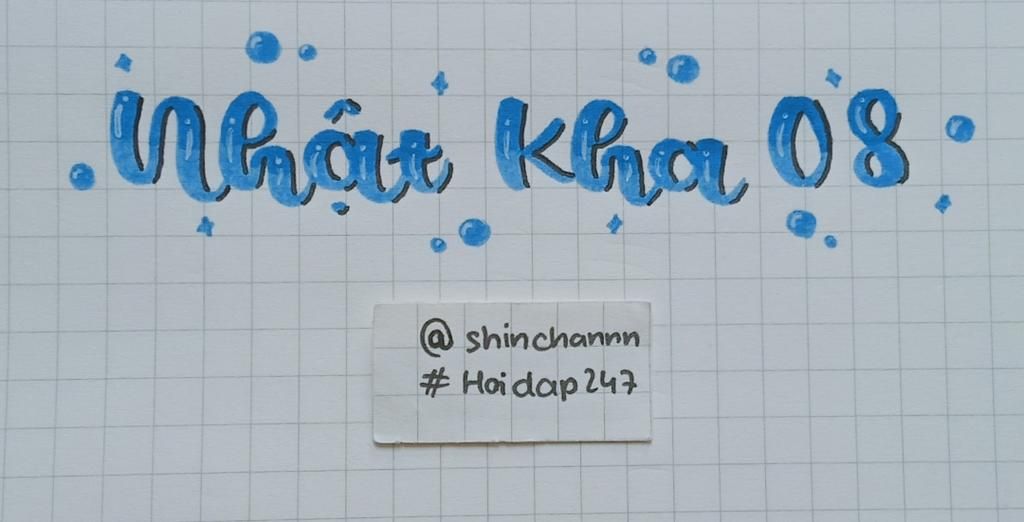 Nhật Kha 08
@ shinchannn
# Hoidap247